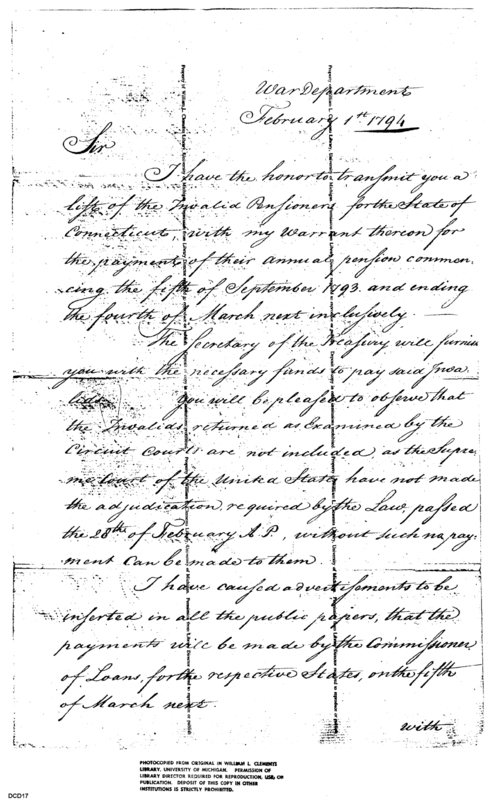 War Department
February 1st 1794
Sir
I have the honor to transmit you a
list of the Invalid Pensioners for the State of
Connecticut, with my Warrant thereon for
the payment of their annual pension commen,
cing the fifth of September 1793. and ending
the fourth of March next inclusively. —
The Secretary of the Treasury will furnish
you with the necessary funds to pay said Inva
lids. You will be pleased to observe that
the Invalids returned as Examined by the
Circuit Courts are not included, as the Supre
me Court of the United States have not made
the adjudication, required by the Law, passed
the 28th of February A.P., without such no pay-
ment can be made to them.
I have caused advertisements to be
inserted in all the public papers, that the
payments will be made by the Commissioner
of Loans, for the respective States, on the fifth
of March next.
with
PHOTOCOPIED FROM ORIGINAL IN WILLIAM L. CLEMENTS
LIBRARY, UNIVERSITY OF MICHIGAN. PERMISSION OF
LIBRARY DIRECTOR REQUIRED FOR REPRODUCTION, USE, OR
PUBLICATION. DEPOSIT OF THIS COPY IN OTHER
INSTITUTIONS IS STRICTLY PROHIBITED.
DCD17